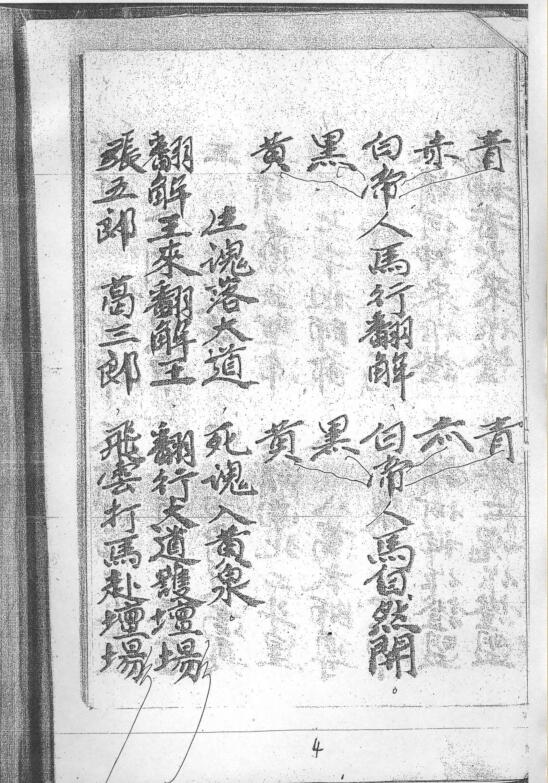 青
赤
白帝人馬行翻解
黑
黃
青
赤
白帝人馬自然開。
黑
黃
生魂落大道 死魂入黃泉。
翻解王來翻解王 翻行大道護壇場
張五郎 葛三郎 飛雲打馬赴壇場
4